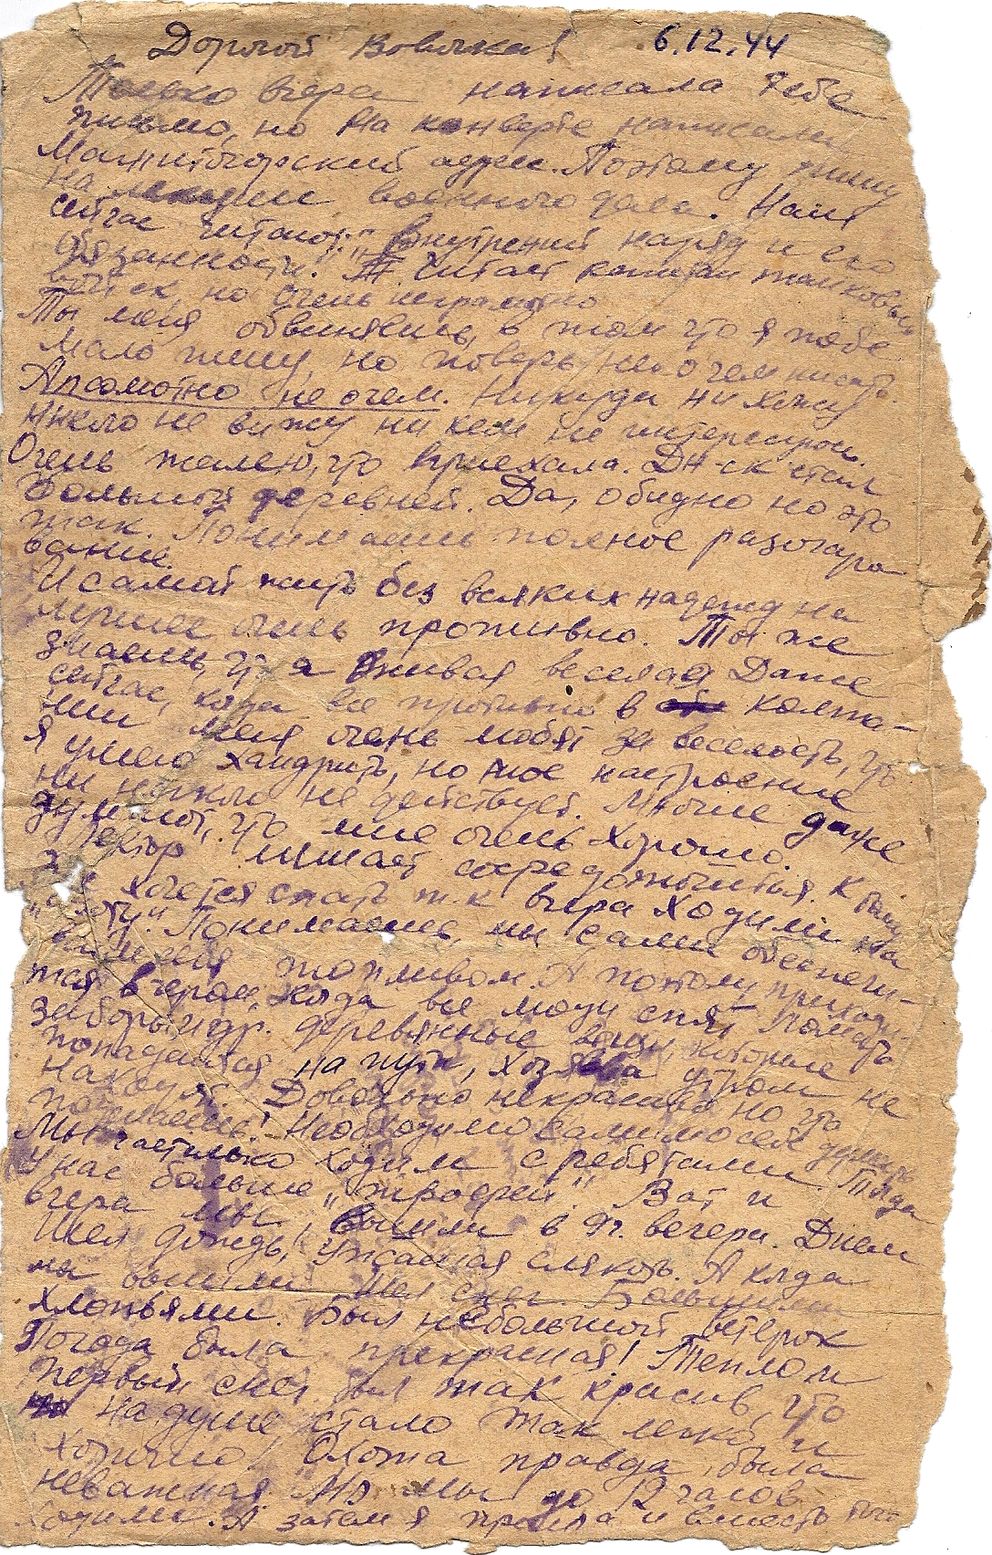 Дорогой Вовочка! 6.12.44
Только вчера написала тебе
письмо, но на конверте написали
Магнитогорский адрес. Поэтому пишу
на лекции военного дела. Нам
сейчас читают: "Внутрений наряд и его
обязанности". Читает капитан танковых
войск, но очень неграмотно
Ты меня обвиняешь, в том что я тебе
мало пишу, но поверь, не о чем писать.
Апсолютно не о чем. Никуда ни хожу
никого не вижу ни кем не интересуюсь.
Очень жалею, что приехала. Дн-ск стал
большой деревней. Да, обидно но это
так. Понимаешь полное разочаро
вание.
И самой жить без всяких надежд на
лучшее очень противно. Ты же
знаешь, что я живая веселая. Даже
сейчас, когда все противно в компа-
нии меня очень любят за веселость, что
я умею хандрить, но мое настроение
ни на кого не действует. Многие даже
думают, что мне очень хорошо.
Лектор мешает сосредоточиться. К тому
же хочется спать т.к вчера ходили на
"охоту". Понимаешь, мы сами обеспечи-
ваем себя топливом. А потому приходи-
тся вечером, когда все люди спят ломать
заборы и др. деревянные вещи, которые
попадаются на пути, хозяева утром не
находят. Довольно некрасиво но что
поделаешь! Необходимо самим о себе думать
Мы часто ходим с ребятами. Тогда
у нас больше "трофеей". Вот и
вчера мы вышли в 9 ч. вечера. Днем
шел дождь, ужасная слякоть. А когда
мы вышли шел снег большими
хлопьями. Был небольшой ветерок
Погода была прекрасная! Тепло и
первый снег был так красив, что
на душе стало так легко и
хорошо. Охота правда была
неважная. Но мы до 12 часов
ходили. А затем я пришла и вместо